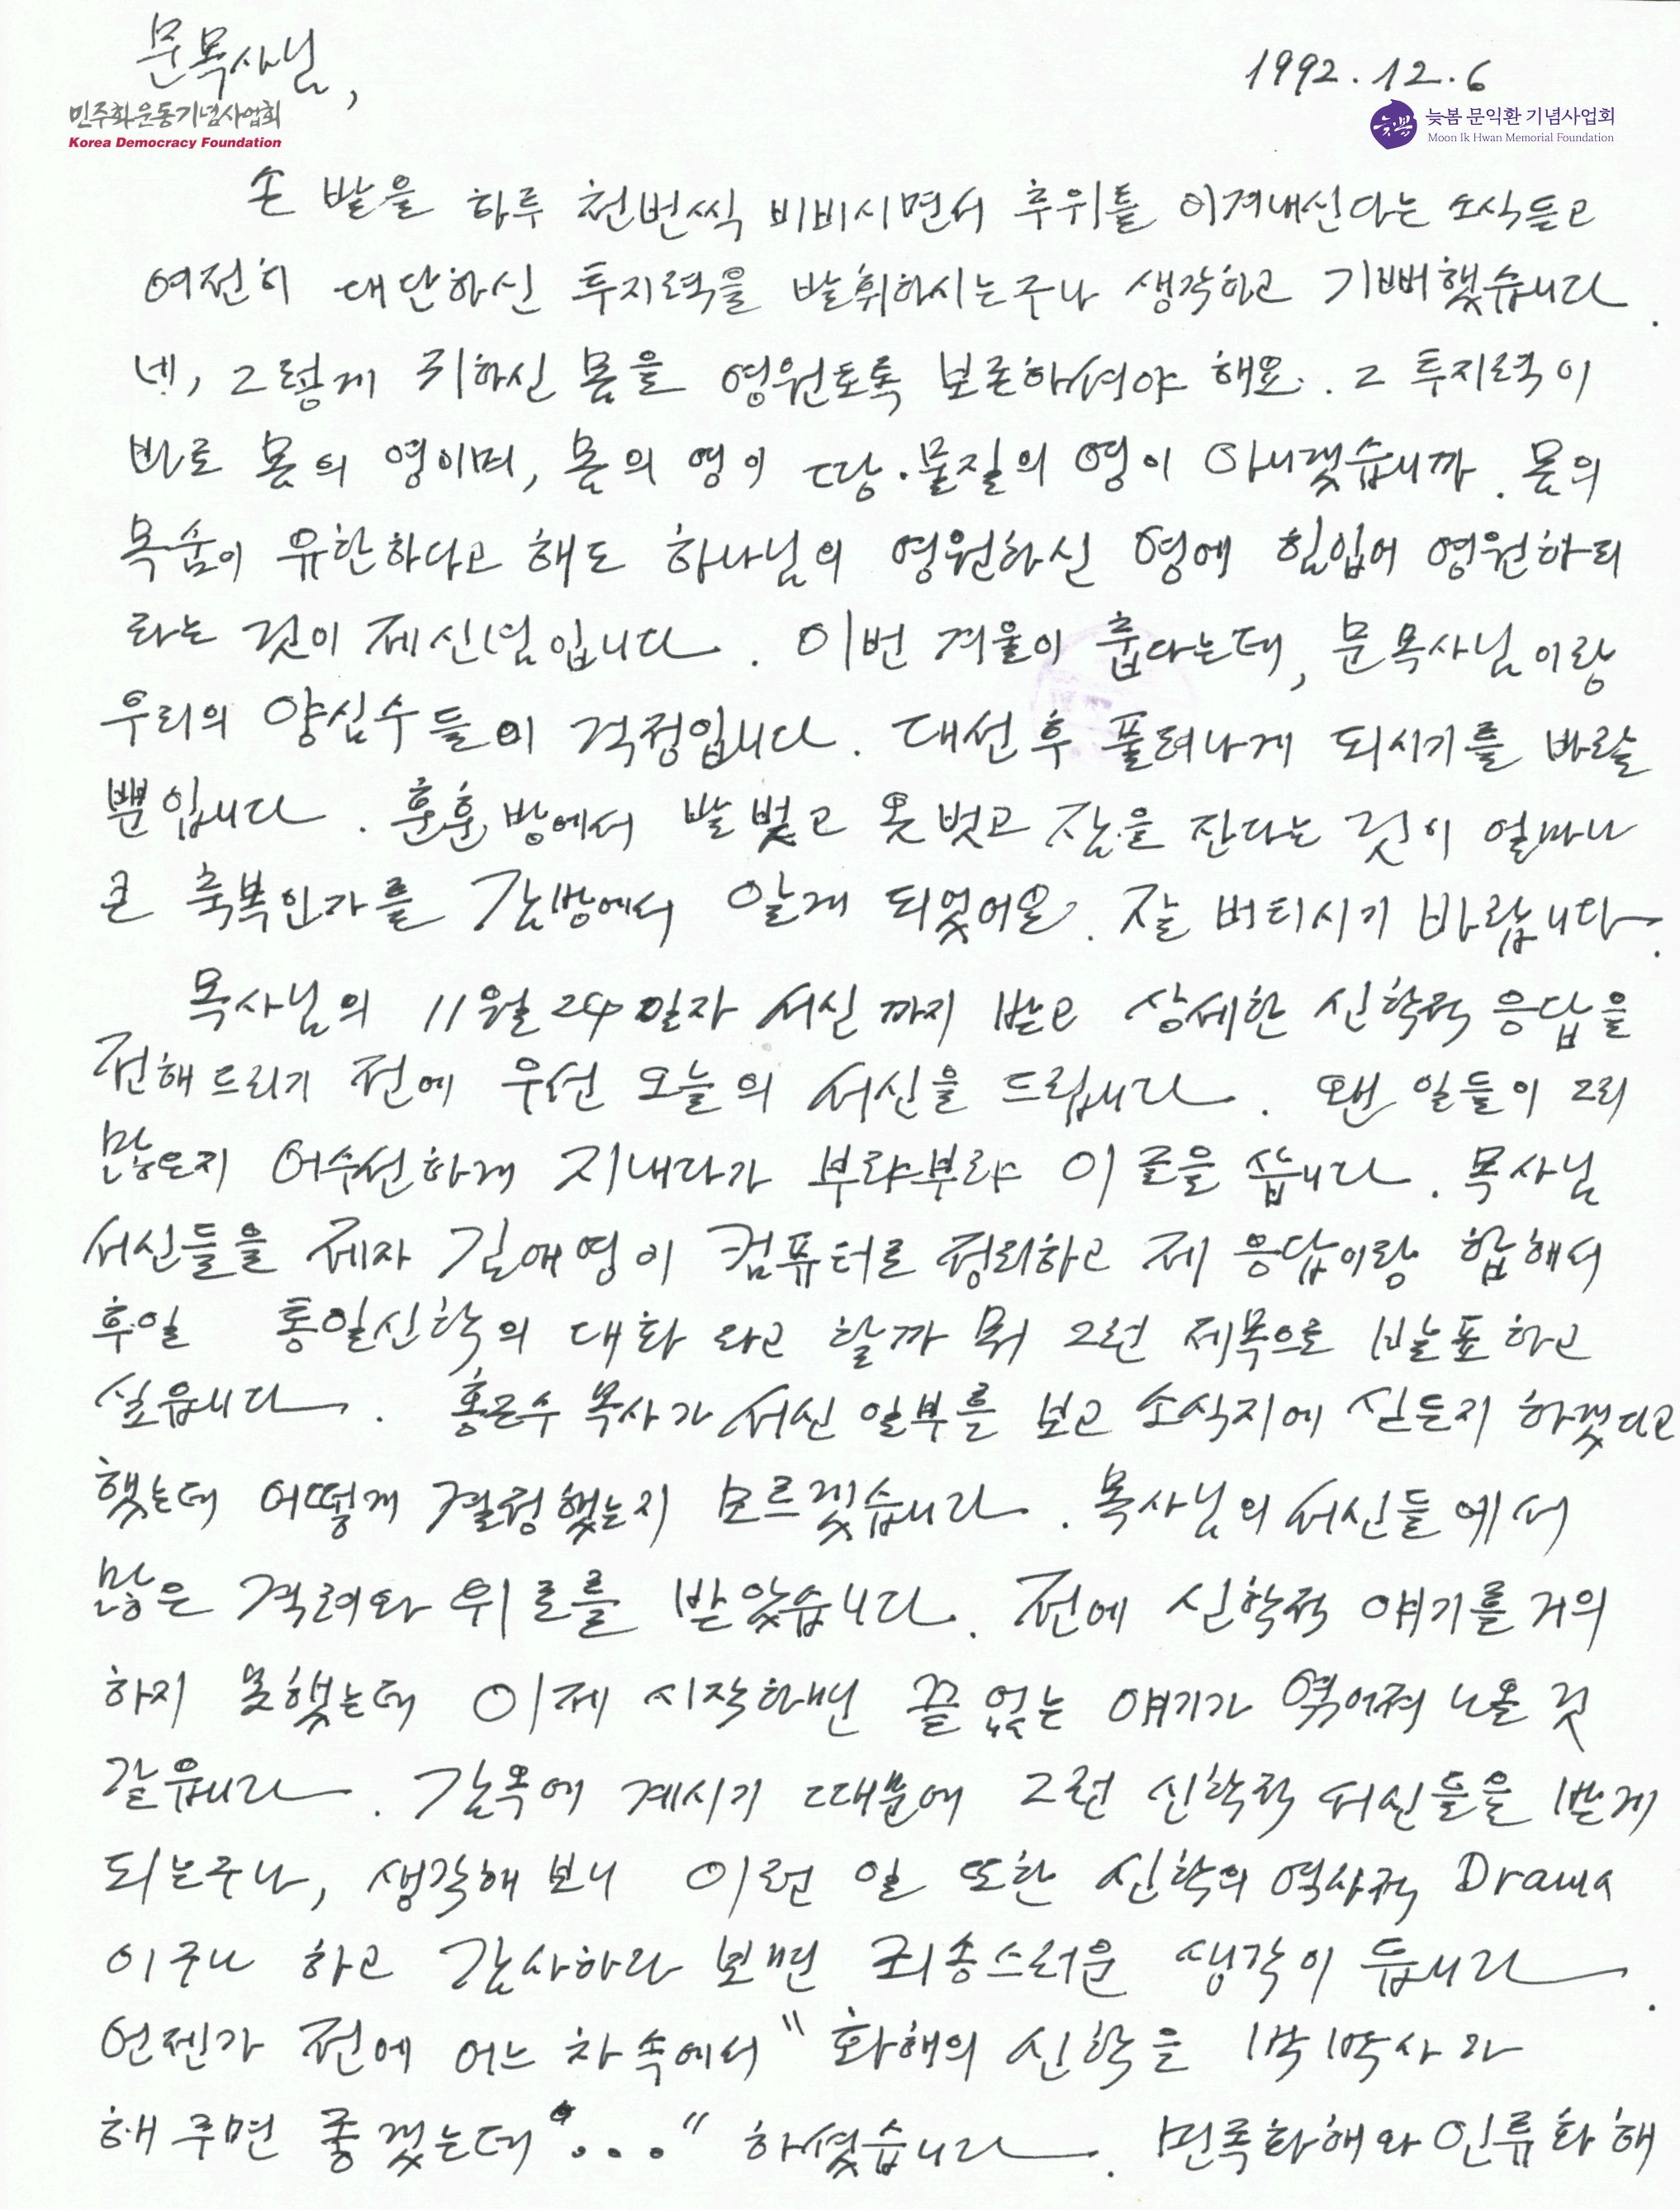 문목사님,
1992.12.6
민주화운동기념사업회
Korea Democracy Foundation
늦봄
늦봄 문익환 기념사업회
Moon Ik Hwan Memorial Foundation
손 발을 하루 천번씩 비비시면서 추위를 이겨내신다는 소식듣고
여전히 대단하신 투지력을 발휘하시는구나 생각하고 기뻐했습니다.
네, 그렇게 귀하신 몸을 영원토록 보존하셔야 해요. 그 투지력이
바로 몸의 영이며, 몸의 영이 땅·물질의 영이 아니겠습니까. 몸의
목숨이 유한하다고 해도 하나님의 영원하신 영에 힘입어 영원하리
라는 것이 제 신념입니다. 이번 겨울이 춥다는데, 문목사님이랑
우리의 양심수들이 걱정입니다. 대선 후 풀려나게 되시기를 바랄
뿐입니다. 훈훈방에서 발벗고 옷벗고 잠을 잔다는 것이 얼마나
큰 축복인가를 감방에서 알게 되었어요. 잘 버티시기 바랍니다.
목사님의 11월 24일자 서신까지 받고 상세한 신학적 응답을
전해드리기 전에 우선 오늘의 서신을 드립니다. 왠 일들이 그리
많은지 어수선하게 지내다가 부랴부랴 이 글을 씁니다. 목사님
서신들을 제자 김애영이 컴퓨터로 정리하고 제 응답이랑 합해서
후일 통일신학의 대화 라고 할까 뭐 그런 제목으로 발표하고
싶읍니다. 홍근수 목사가 서신 일부를 보고 소식지에 싣든지 하겠다고
했는데 어떻게 결정했는지 모르겠습니다. 목사님의 서신들에서
많은 격려와 위로를 받았습니다. 전에 신학적 얘기를 거의
하지 못했는데 이제 시작하면 끝없는 얘기가 엮어져 나올 것
같읍니다. 감옥에 계시기 때문에 그런 신학적 서신들을 받게
되는구나, 생각해 보니 이런 일 또한 신학의 역사적 Drama
이구나 하고 감사하다 보면 죄송스러운 생각이 듭니다.
언젠가 전에 어느 차 속에서 “화해의 신학을 박박사가
해 주면 좋겠는데...” 하셨습니다. 민족화해와 인류화해